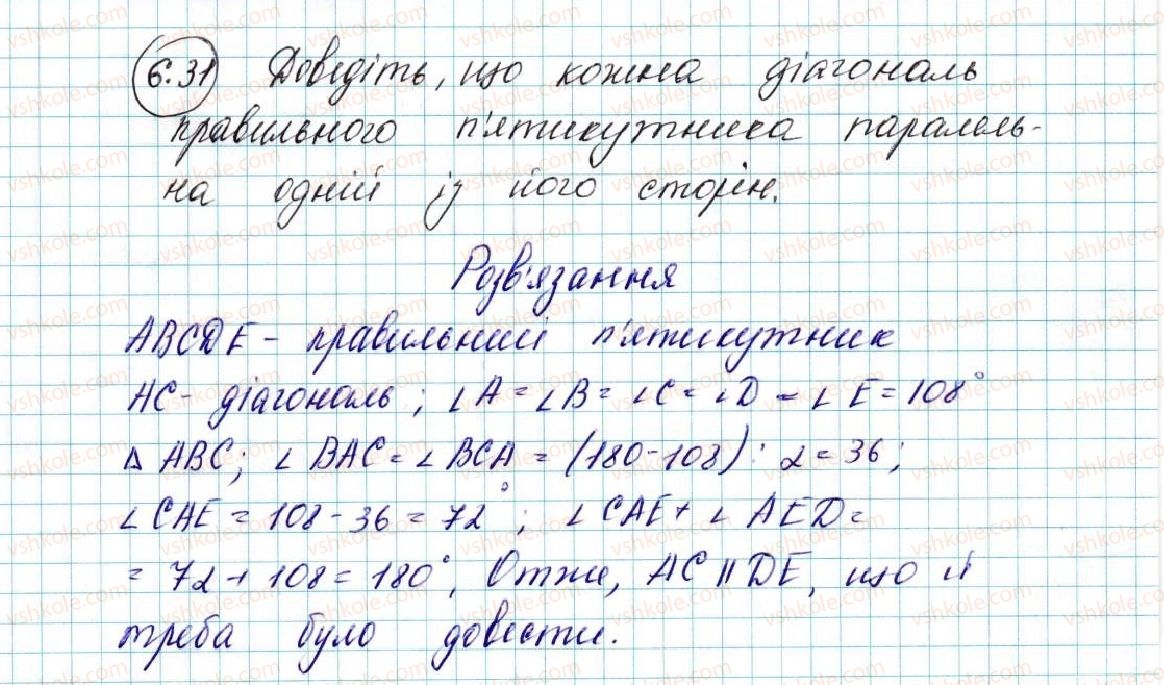 6.31 Доведіть, що кожна діагональ
правильного п'ятикутника паралель-
на одній із його сторін.
Розв'язання
ABCDE - правильний п'ятикутник
AC - діагональ; ∠A = ∠B = ∠C = ∠D = ∠E = 108°
Δ ABC; ∠BAC = ∠BCA = (180-108) : 2 = 36;
∠CAE = 108 - 36 = 72°; ∠CAE + ∠AED =
= 72 + 108 = 180°, Отже, AC || DE, що й
треба було довести.